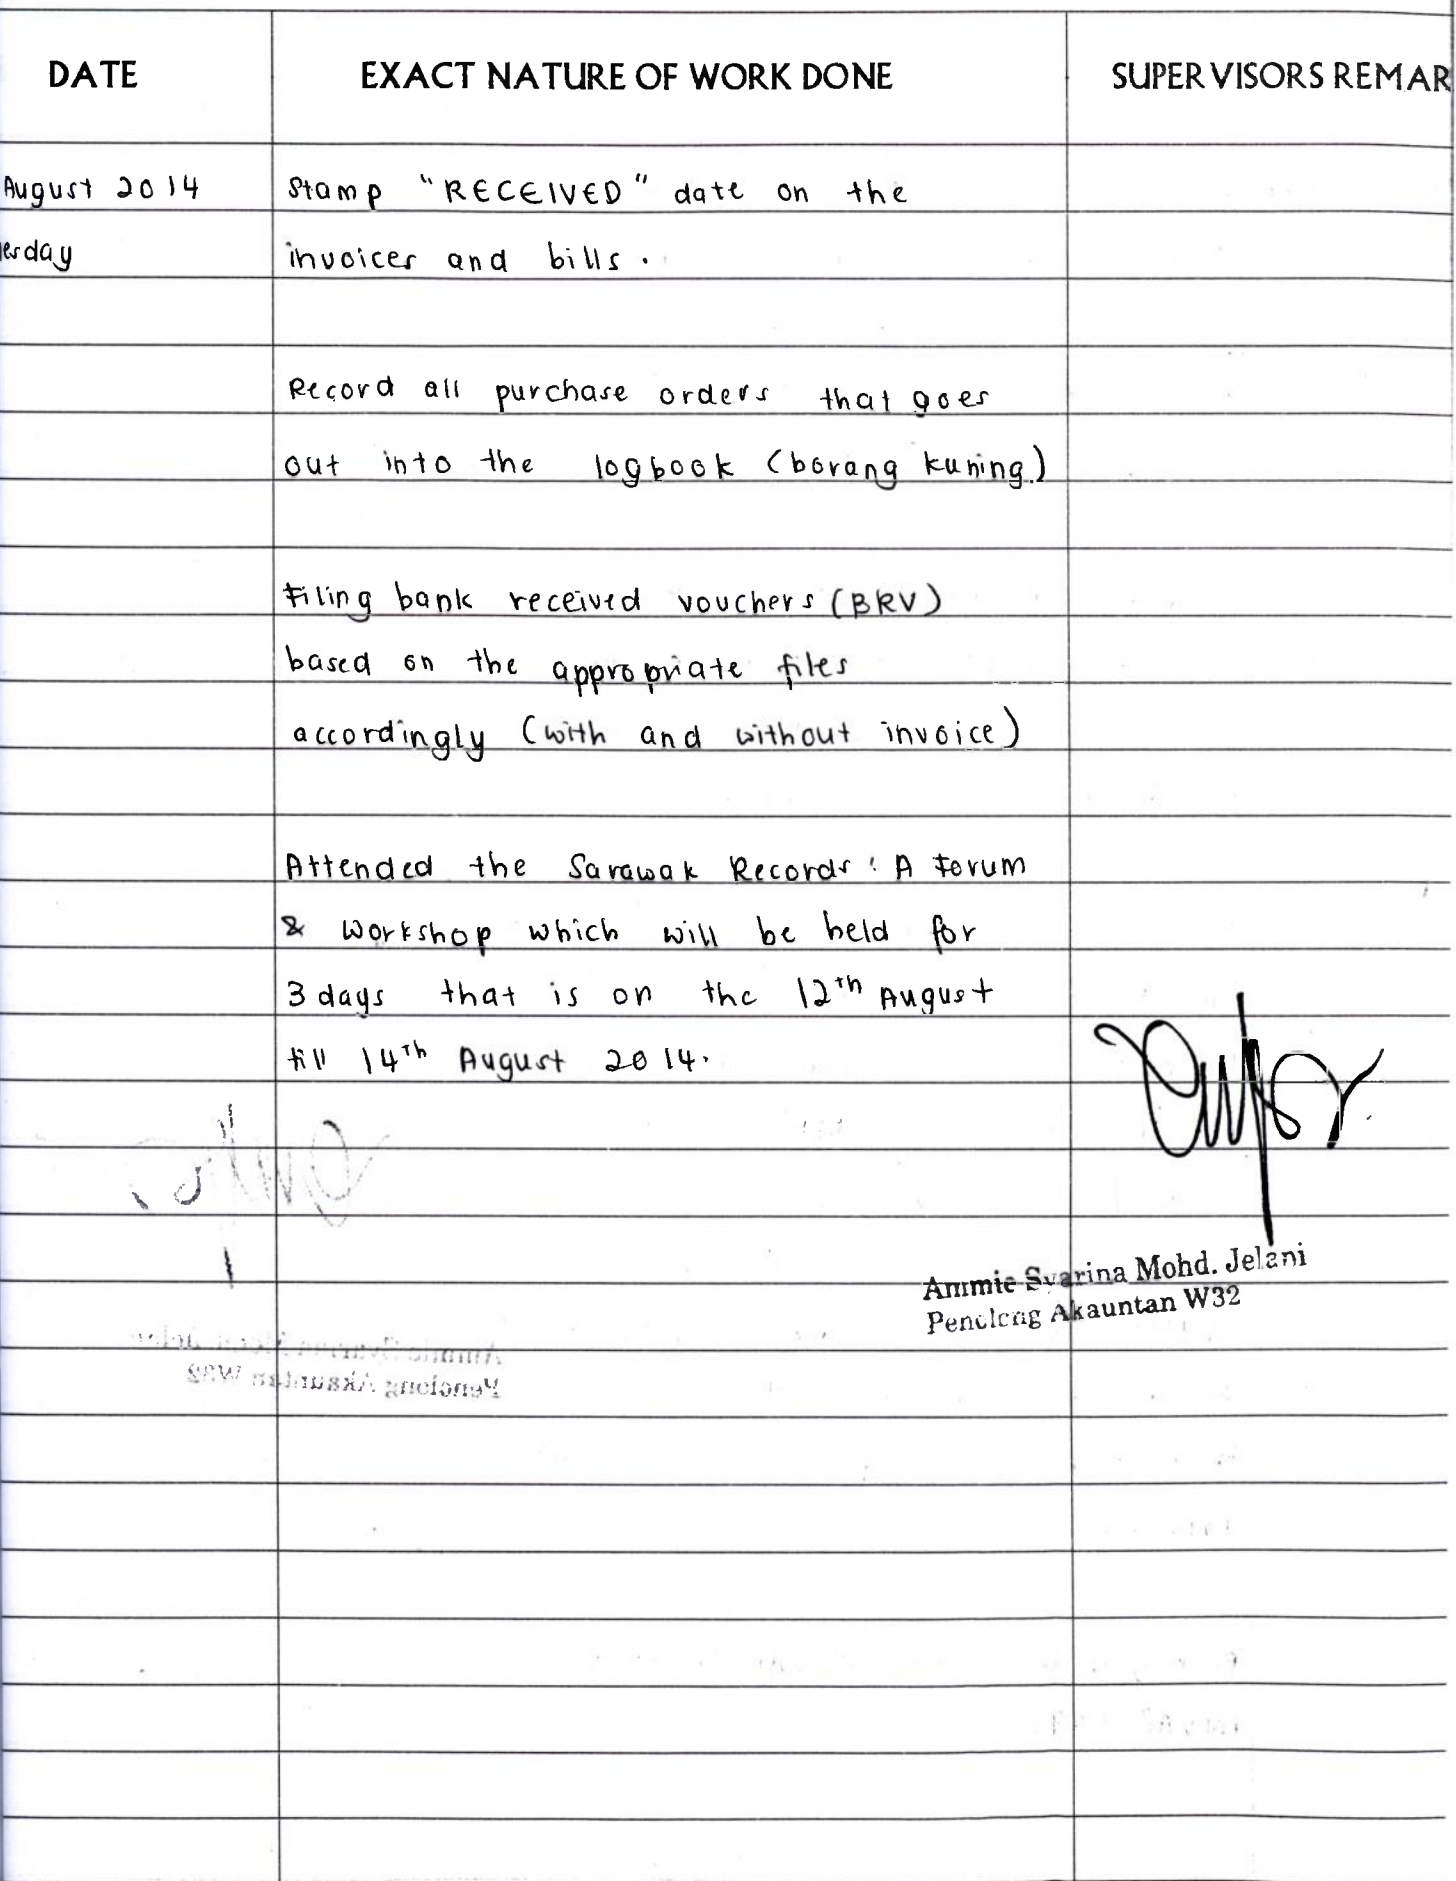 DATE EXACT NATURE OF WORK DONE SUPERVISORS REMAR
August 2014 Stamp "RECEIVED" date on the
esday invoices and bills.
Record all purchase orders that goes
out into the logbook (borang kuning)
Filing bank received vouchers (BRV)
based on the appropriate files
accordingly (with and without invoice)
Attended the Sarawak Records : A Forum
& Workshop which will be held for
3 days that is on the 12th August
till 14th August 2014.
Ammie Syarina Mohd. Jelani
Penolong Akauntan W32